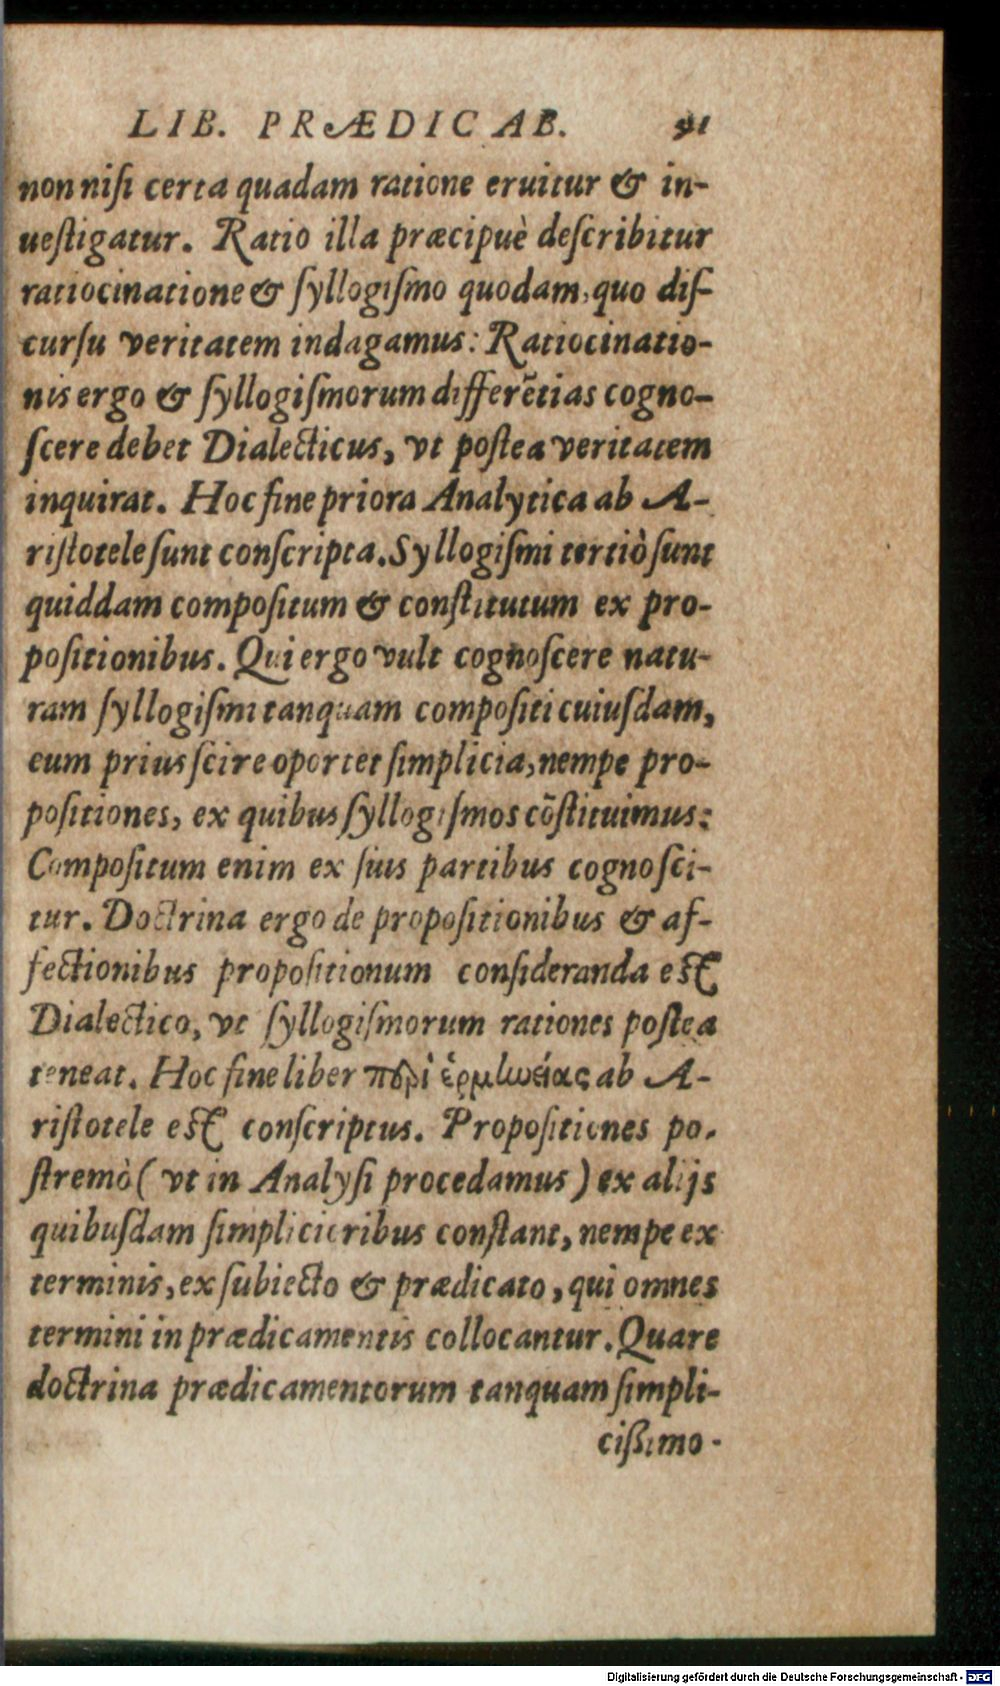 LIB. PRÆDICAB. 91
non nisi certa quadam ratione eruitur & in-
uestigatur. Ratio illa præcipuè describitur
ratiocinatione & syllogismo quodam, quo dis-
cursu veritatem indagamus: Ratiocinatio-
nis ergo & syllogismorum differẽtias cogno-
scere debet Dialecticus, vt postea veritatem
inquirat. Hoc fine priora Analytica ab A-
ristotele sunt conscripta. Syllogismi tertiò sunt
quiddam compositum & constitutum ex pro-
positionibus. Qui ergo vult cognoscere natu-
ram syllogismi tanquam compositi cuiusdam,
eum prius scire oportet simplicia, nempe pro-
positiones, ex quibus syllogismos cõstituimus:
Compositum enim ex suis partibus cognosci-
tur. Doctrina ergo de propositionibus & af-
fectionibus propositionum consideranda est
Dialectico, vt syllogismorum rationes postea
teneat. Hoc fine liber περὶ ἑρμηνείας ab A-
ristotele est conscriptus. Propositiones po-
stremò (vt in Analysi procedamus) ex alijs
quibusdam simplicioribus constant, nempe ex
terminis, ex subiecto & prædicato, qui omnes
termini in prædicamentis collocantur. Quare
doctrina prædicamentorum tanquam simpli-
cißimo-
Digitalisierung gefördert durch die Deutsche Forschungsgemeinschaft - DFG